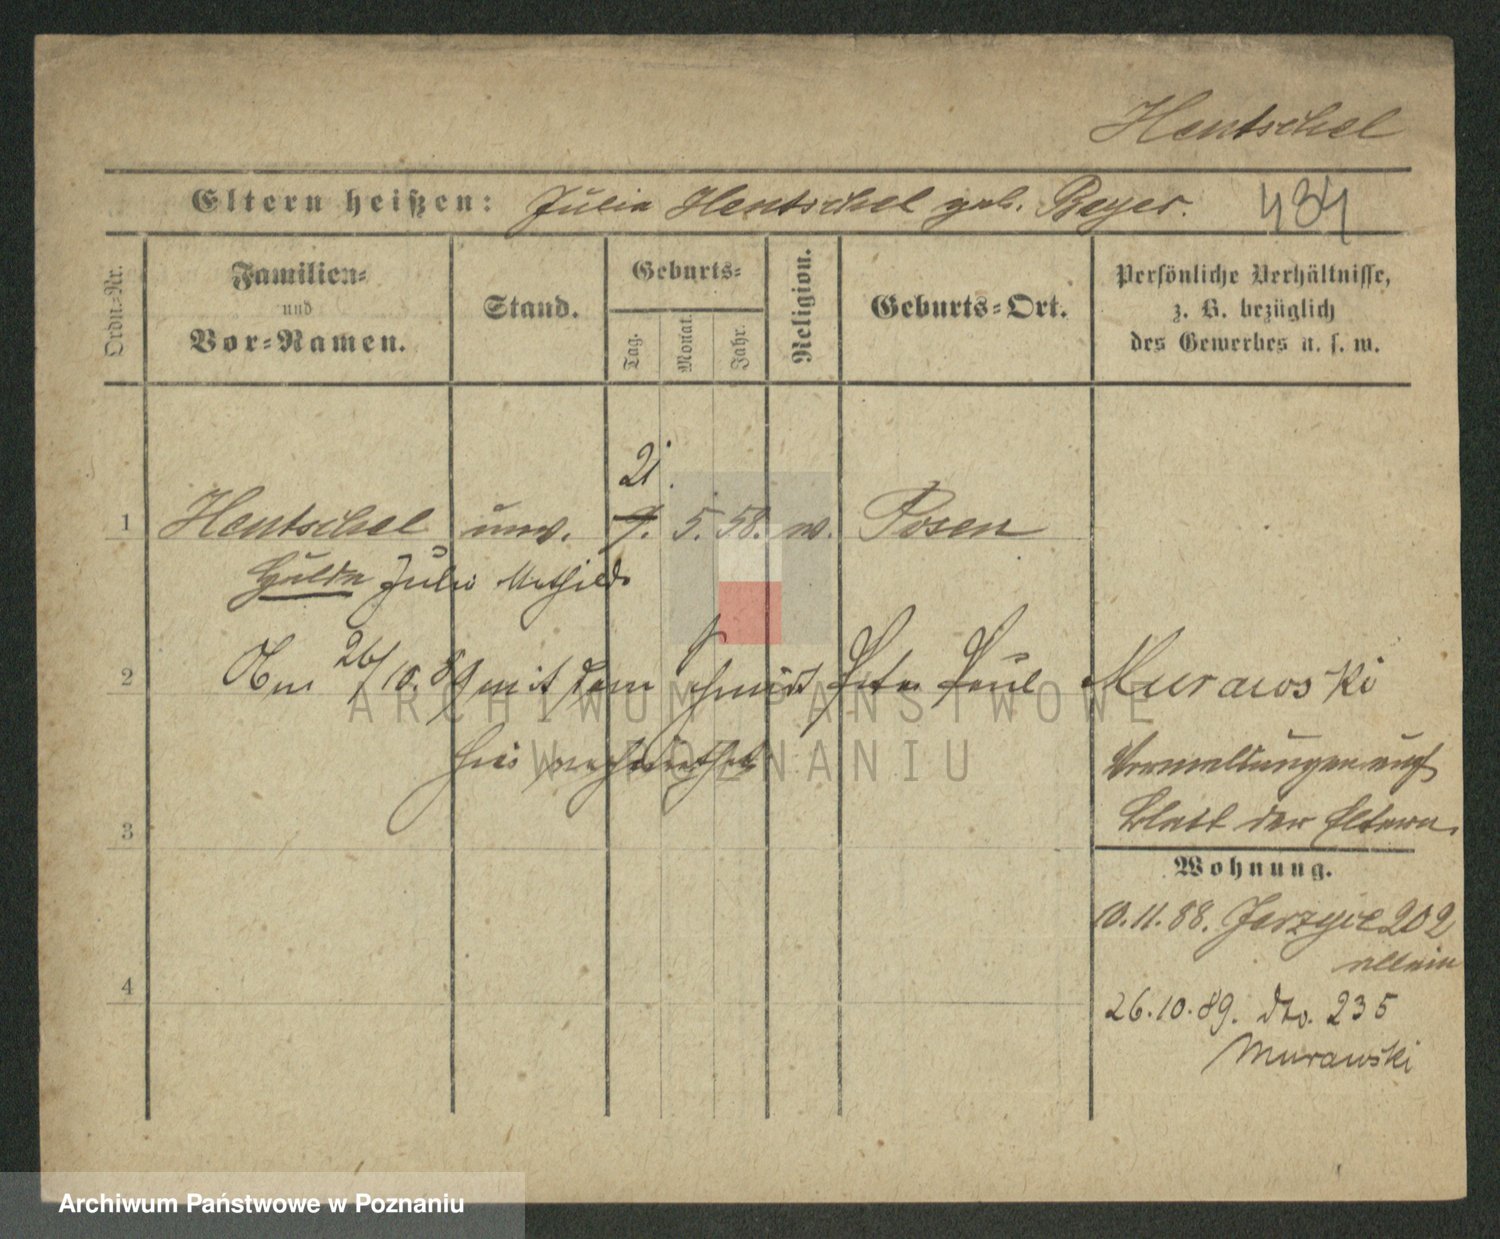 Hentschel
Eltern heißen: Julia Hentschel geb. Beyer. 434
Ordn.=Nr.
Familien=
und
Vor=Namen.
Stand.
Geburts=
Tag.
Monat.
Jahr.
Religion.
Geburts=Ort.
Persönliche Verhältnisse,
z. B. bezüglich
des Gewerbes u. s. w.
21.
1 Hentschel unv. 9. 5. 58. w. Posen
Hulda Julia Mathilde
2 Am 26/10.89 mit dem Schmidt Peter Paul Murawski
hier verheirathet
Vermeldungen auf
Blatt der Eltern.
3
Wohnung.
10.11.88. Jerzyce 202
allein
4
26.10.89. dto. 235
Murawski
ARCHIWUM PAŃSTWOWE
W POZNANIU
Archiwum Państwowe w Poznaniu